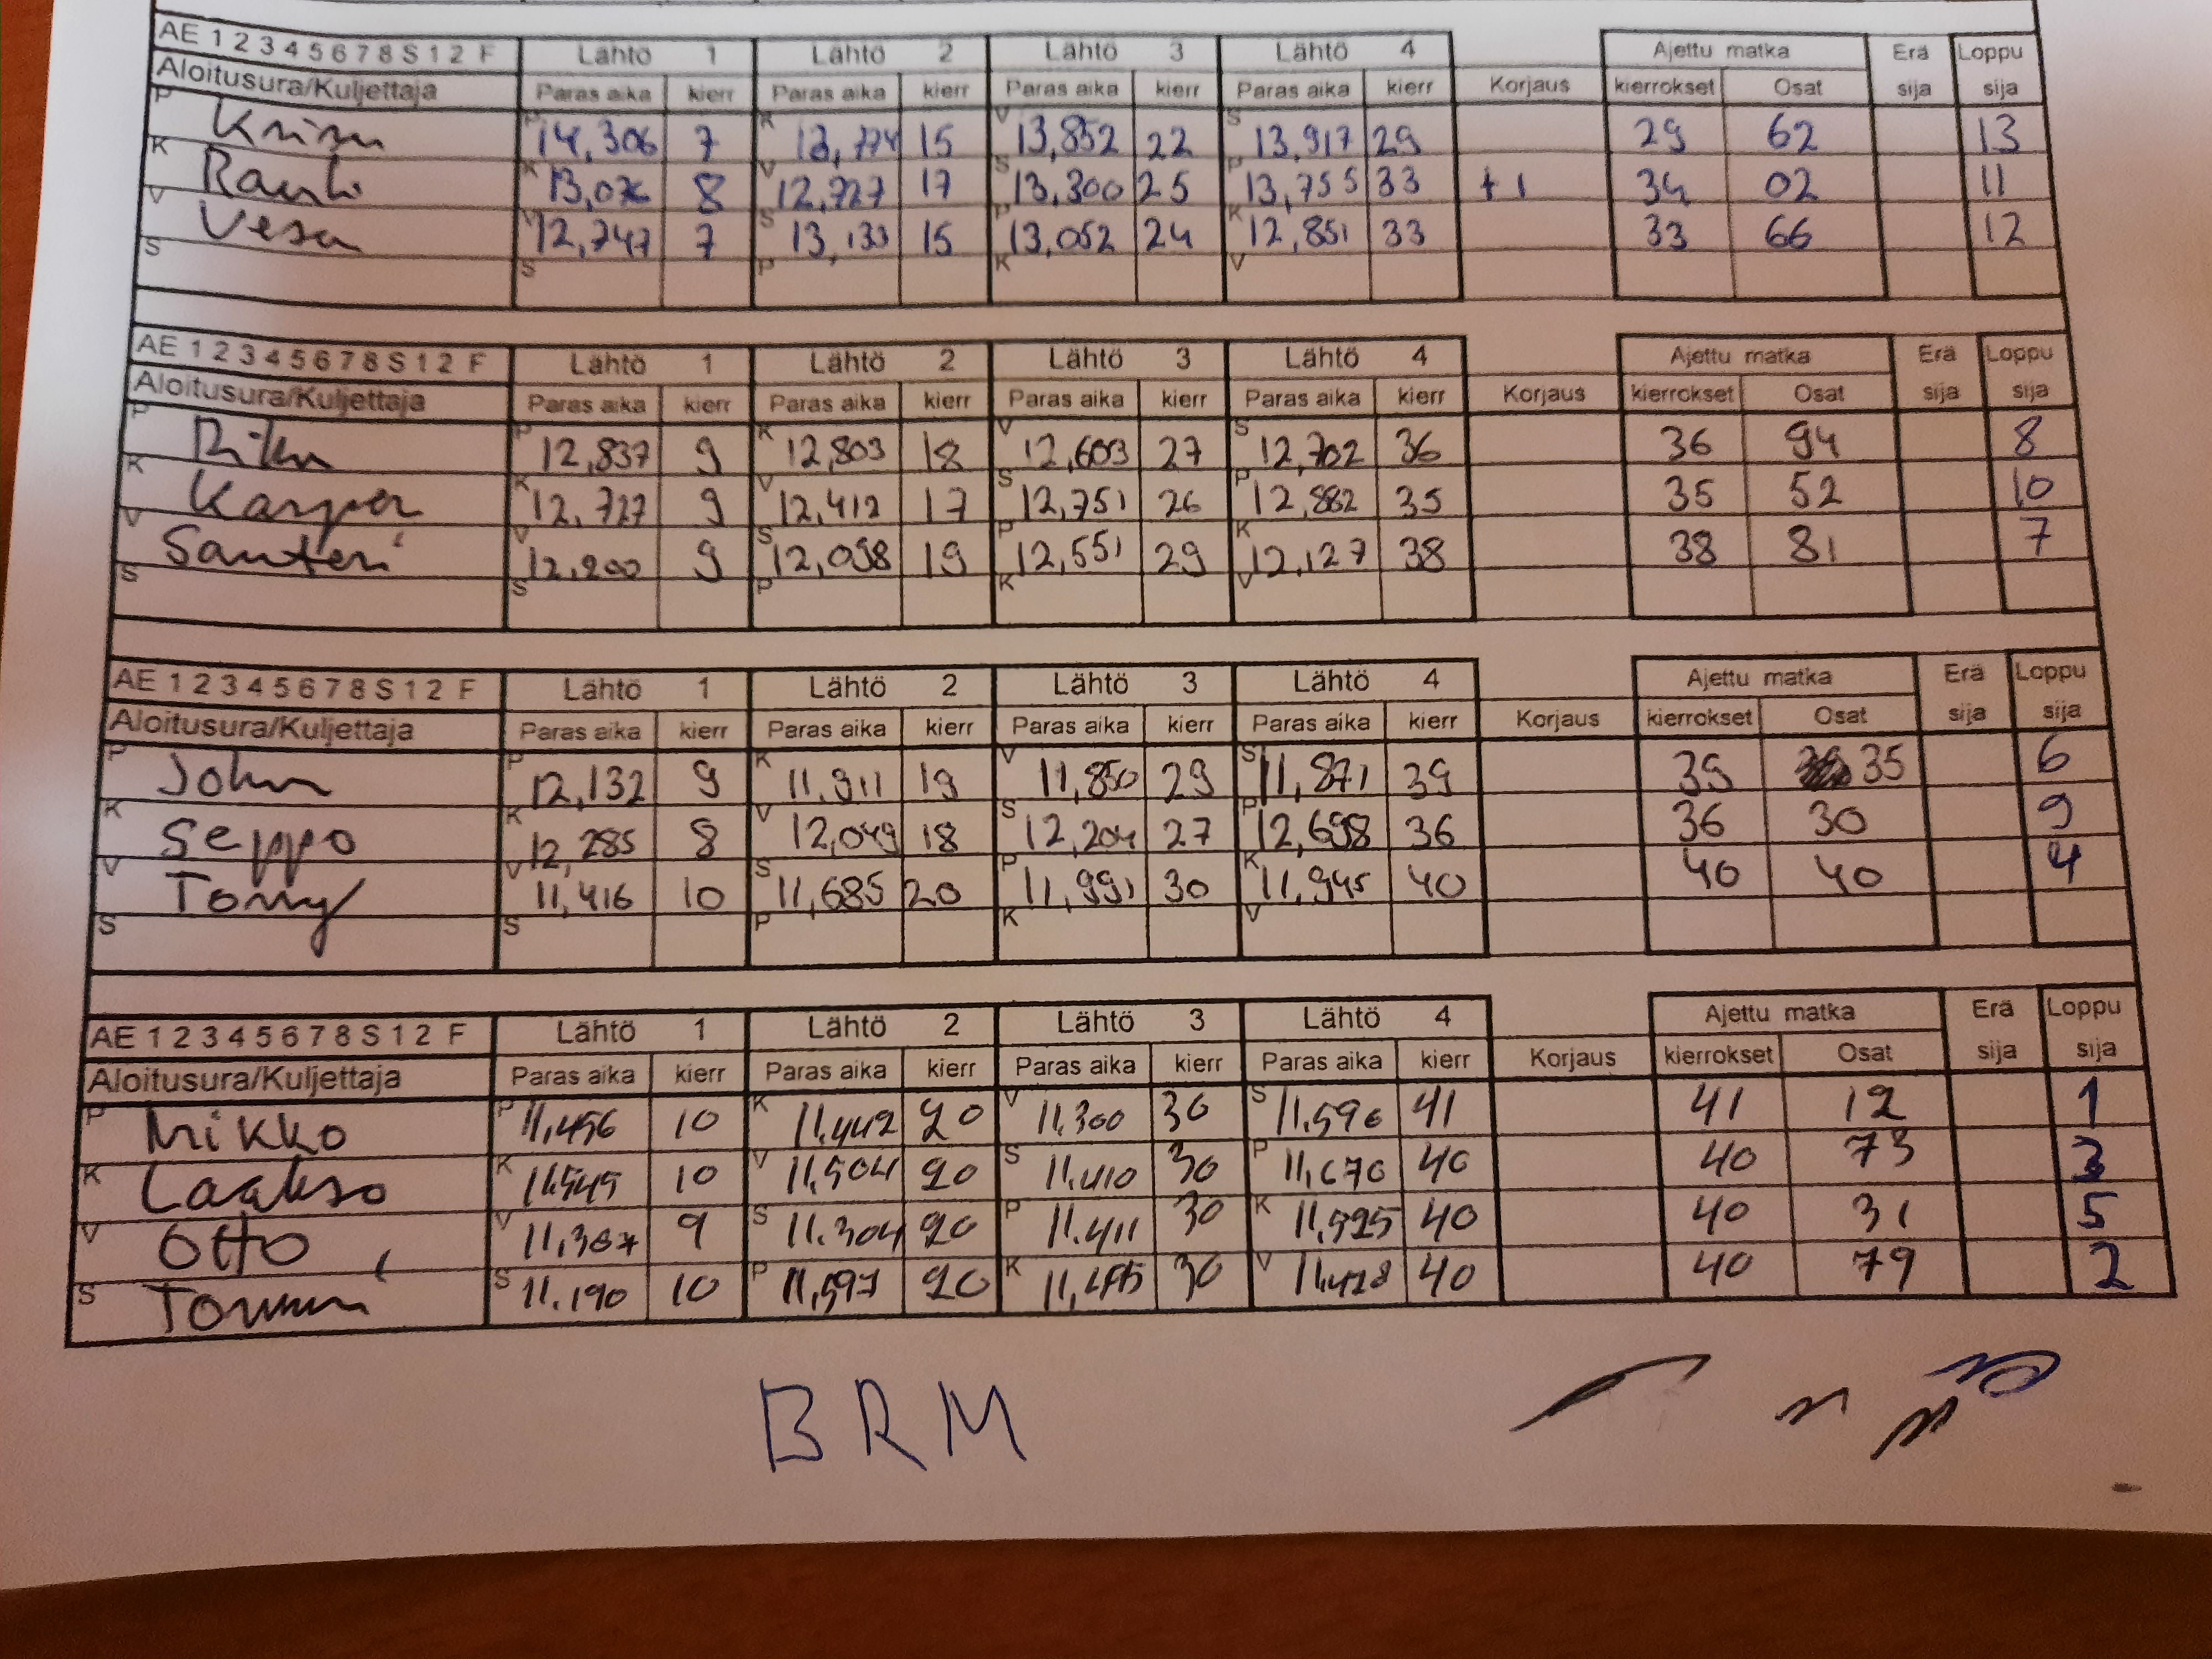 AE 1 2 3 4 5 6 7 8 S 1 2 F Lähtö 1 Lähtö 2 Lähtö 3 Lähtö 4 Ajettu matka Erä Loppu
Aloitusura/Kuljettaja Paras aika kierr Paras aika kierr Paras aika kierr Paras aika kierr Korjaus kierrokset Osat sija sija
P P 14,306 7 K 13,774 15 V 13,852 22 S 13,917 29 29 62 13
K Rauli K 13,076 8 V 12,727 17 S 13,300 25 P 13,755 33 +1 34 02 11
V Vesa V 12,747 7 S 13,133 15 P 13,052 24 K 12,851 33 33 66 12
S S P K V
AE 1 2 3 4 5 6 7 8 S 1 2 F Lähtö 1 Lähtö 2 Lähtö 3 Lähtö 4 Ajettu matka Erä Loppu
Aloitusura/Kuljettaja Paras aika kierr Paras aika kierr Paras aika kierr Paras aika kierr Korjaus kierrokset Osat sija sija
P Riku P 12,837 9 K 12,803 18 V 12,603 27 S 12,702 36 36 94 8
K Kasper K 12,727 9 V 12,412 17 S 12,751 26 P 12,882 35 35 52 10
V Santeri V 12,200 9 S 12,098 19 P 12,551 29 K 12,127 38 38 81 7
S S P K V
AE 1 2 3 4 5 6 7 8 S 1 2 F Lähtö 1 Lähtö 2 Lähtö 3 Lähtö 4 Ajettu matka Erä Loppu
Aloitusura/Kuljettaja Paras aika kierr Paras aika kierr Paras aika kierr Paras aika kierr Korjaus kierrokset Osat sija sija
P John P 12,132 9 K 11,911 19 V 11,850 29 S 11,871 39 39 35 6
K Seppo K 12,285 8 V 12,049 18 S 12,204 27 P 12,698 36 36 30 9
V Tomy V 11,416 10 S 11,685 20 P 11,991 30 K 11,945 40 40 40 4
S S P K V
AE 1 2 3 4 5 6 7 8 S 1 2 F Lähtö 1 Lähtö 2 Lähtö 3 Lähtö 4 Ajettu matka Erä Loppu
Aloitusura/Kuljettaja Paras aika kierr Paras aika kierr Paras aika kierr Paras aika kierr Korjaus kierrokset Osat sija sija
P Mikko P 11,456 10 K 11,442 20 V 11,300 30 S 11,596 41 41 12 1
K Laakso K 11,545 10 V 11,504 20 S 11,410 30 P 11,670 40 40 73 3
V Otto V 11,367 9 S 11,304 20 P 11,411 30 K 11,525 40 40 31 5
S Tommi S 11,190 10 P 11,597 20 K 30 V 11,428 40 40 79 2
BRM